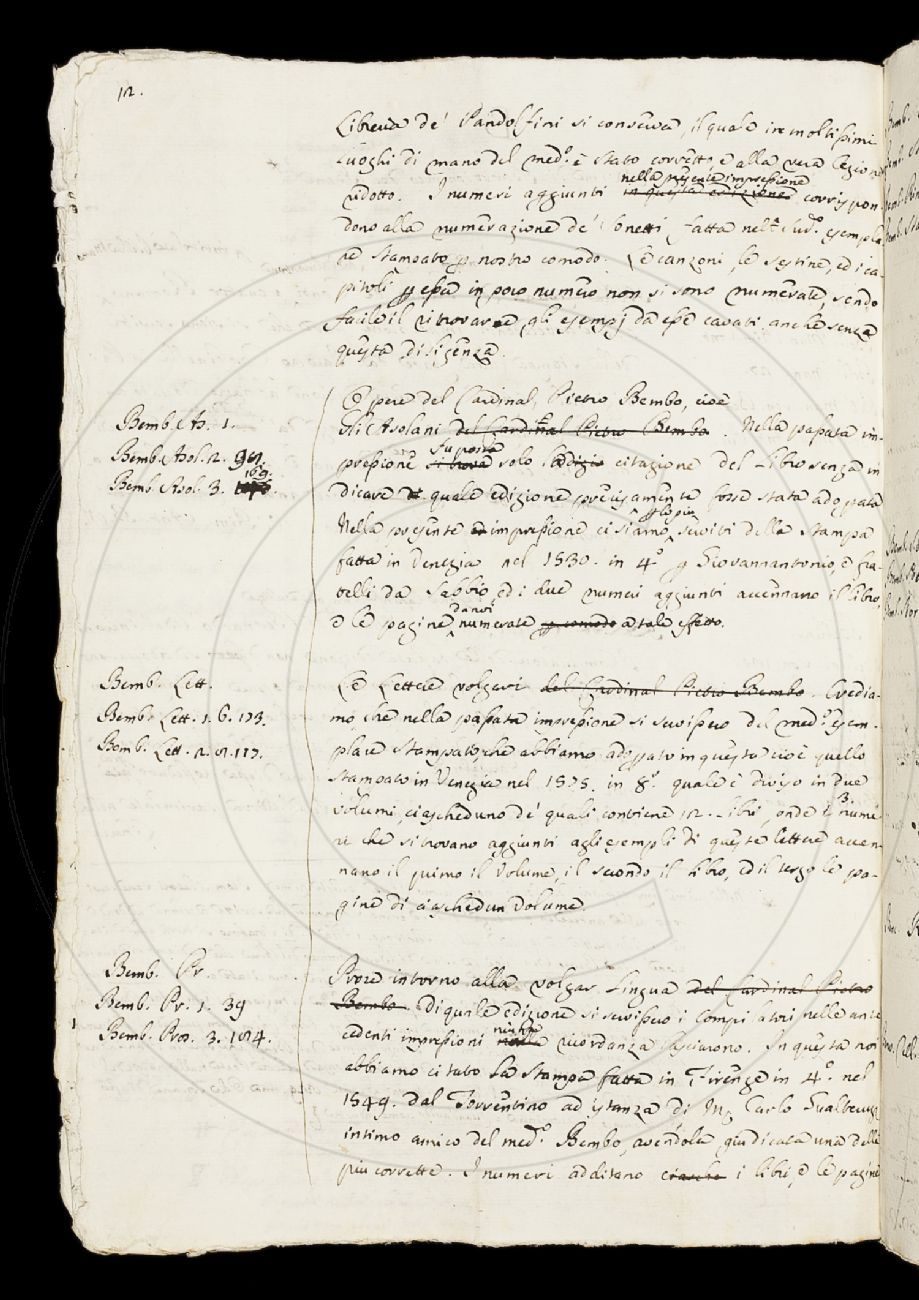 12.
Libreria de' Pandolfini si conserva, il quale in moltissimi
luoghi di mano del med.º è stato corretto, e alla vera lezione
ridotto. I numeri aggiunti in questa edizione nella presente impressione corrispon-
dono alla numerazione de' Sonetti fatta nel sud.º esempla
re stampato p nostro comodo. Le canzoni, le sestine, ed i ca-
pitoli p esser in poco numero non si sono numerate, sendo
facile il ritrovare gli esempj da esse cavati anche senza
questa diligenza.
Opere del Cardinal Pietro Bembo, cioè
Bemb. As. 1.
Gli Asolani del Cardinal Pietro Bembo. Nella passata im-
Bemb. Asol. 2. 92.
pressione si trova fu posta solo citazione del Libro senza in
Bemb. Asol. 3. 169.
dicare quale edizione precisamente fosse stata adoprata
Nella presente impressione ci siamo p lo più serviti della stampa
fatta in Venezia nel 1530. in 4.º p Giovannantonio, e fra-
telli da Sabbio, ed i due numeri aggiunti accennano il libro,
e le pagine da noi numerate p comodo a tale effetto.
Bemb. Lett.
Le Lettere volgari del Cardinal Pietro Bembo. Credia-
Bemb. Lett. 1. 6. 173.
mo che nella passata impressione si servissero del med.º esem-
Bemb. Lett. 2. 2. 117.
plare stampato, che abbiamo adoprato in questa cioè quello
stampato in Venezia nel 1575. in 8.º quale è diviso in due
volumi, ciascheduno de' quali contiene 12. Libri, onde i 3. nume
ri che si trovano aggiunti agli esempli di queste lettere accen-
nano il primo il Volume, il secondo il libro, ed il terzo le pa-
gine di ciaschedun Volume.
Bemb. Pr
Prose intorno alla volgar Lingua del Cardinal Pietro
Bemb. Pr. 1. 39
Bembo. Di quale edizione si servissero i Compilatori nelle ante
Bemb. Pros. 3. 124.
cedenti impressioni niuna ricordanza lasciarono. In questa noi
abbiamo citato la stampa fatta in Firenze in 4.º nel
1549. dal Torrentino ad istanza di M. Carlo Gualteruzzi
intimo amico del med.º Bembo, avendola giudicata una delle
più corrette. I numeri additano i libri, e le pagine